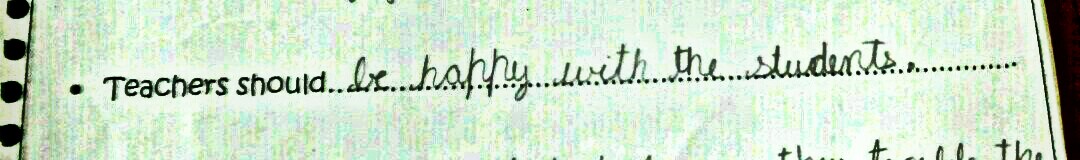 • Teachers should be happy with the students.
the